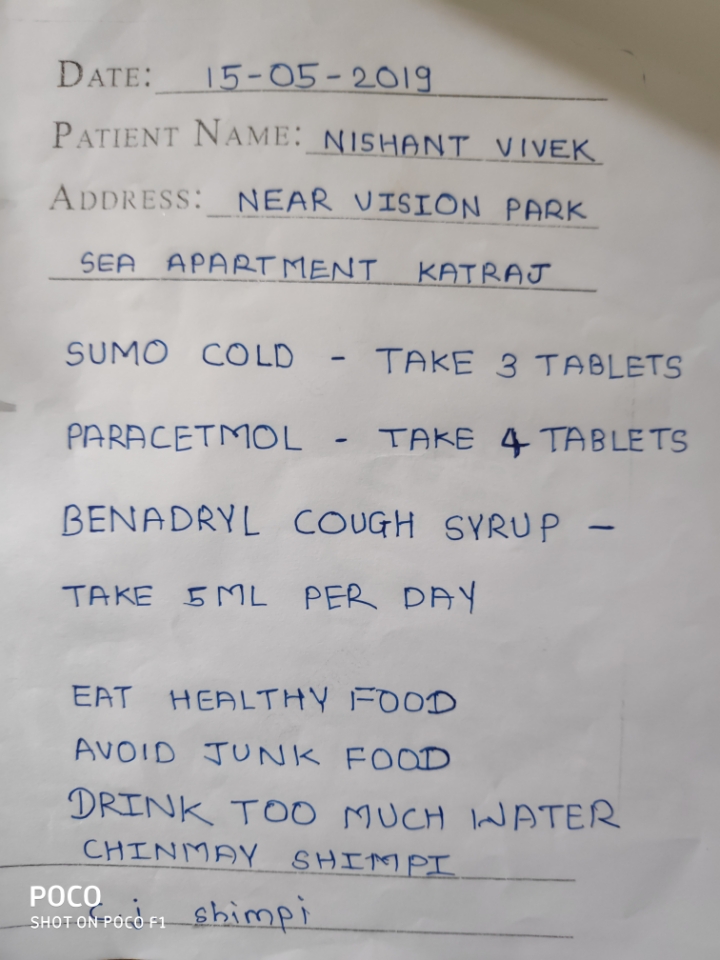 DATE: 15-05-2019
PATIENT NAME: NISHANT VIVEK
ADDRESS: NEAR VISION PARK
SEA APARTMENT KATRAJ
SUMO COLD - TAKE 3 TABLETS
PARACETMOL - TAKE 4 TABLETS
BENADRYL COUGH SYRUP -
TAKE 5ML PER DAY
EAT HEALTHY FOOD
AVOID JUNK FOOD
DRINK TOO MUCH WATER
CHINMAY SHIMPI
shimpi
POCO
SHOT ON POCO F1